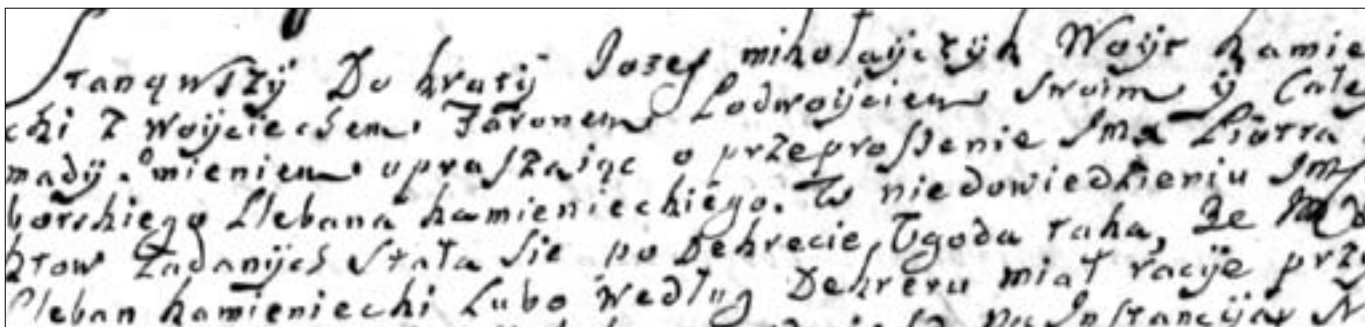 Stanąwszÿ Do kratÿ Jozef mikołaÿczÿk Woÿt kamie
cki z woÿciechem Faronem Podwoÿciem swoim ÿ Całeÿ
madÿ mieniem upraszaiąc o przeproszenie Jmx Piotra
borskiego Plebana kamienieckiego. W niedowiedzieniu Jm
ktow Zadanÿch stała sie po Dekrecie, Ugoda taka, Ze
Pleban kamieniecki Lubo według Dekretu miał racÿe prze
na Instancÿą